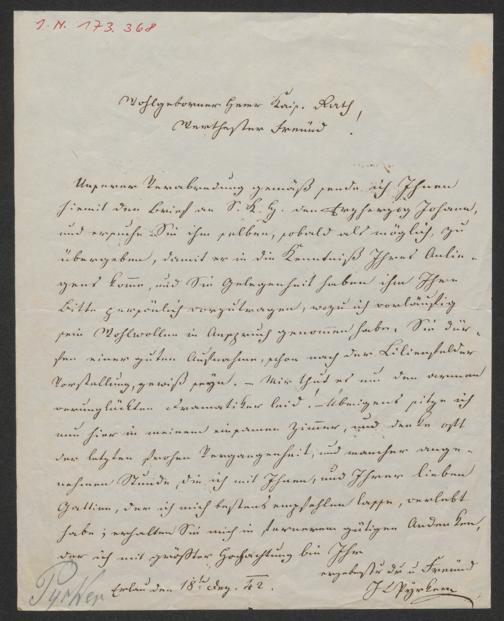 J. N. 173.368
Wohlgeborner Herr Kais. Rath,
Werthester Freund
Unserer Verabredung gemäß sende ich Ihnen
hiemit den Brief an S. K. H. den Erzherzog Johann,
und ersuche Sie ihn selben, sobald als möglich, zu
übergeben, damit er in die Kenntniß Ihres Anlie-
gens komme, und Sie Gelegenheit haben ihm Ihre
Bitte persönlich vorzutragen, wozu ich vorläufig
sein Wohlwollen in Anspruch genommen habe. Sie dür-
fen einer guten Aufnahme, schon nach der Lilienfelder
Vorstellung, gewiß seyn. – Mir thut es nu den armen
verunglückten Dramatiker leid! – Übrigens sitze ich
nun hier in meinem einsamen Zimmer, und denke oft
der letzten frohen Vergangenheit, und mancher ange-
nehmen Stunde, die ich mit Ihnen, und Ihrer lieben
Gattien, der ich mich bestens empfehlen lasse, verlebt
habe; erhalten Sie mich in fernerem gütigen Andenken,
der ich mit größter Hochachtung bin Ihr
ergebenster u Freund
Erlau den 18t Dez. 42.
J L Pyrker
Pyrker